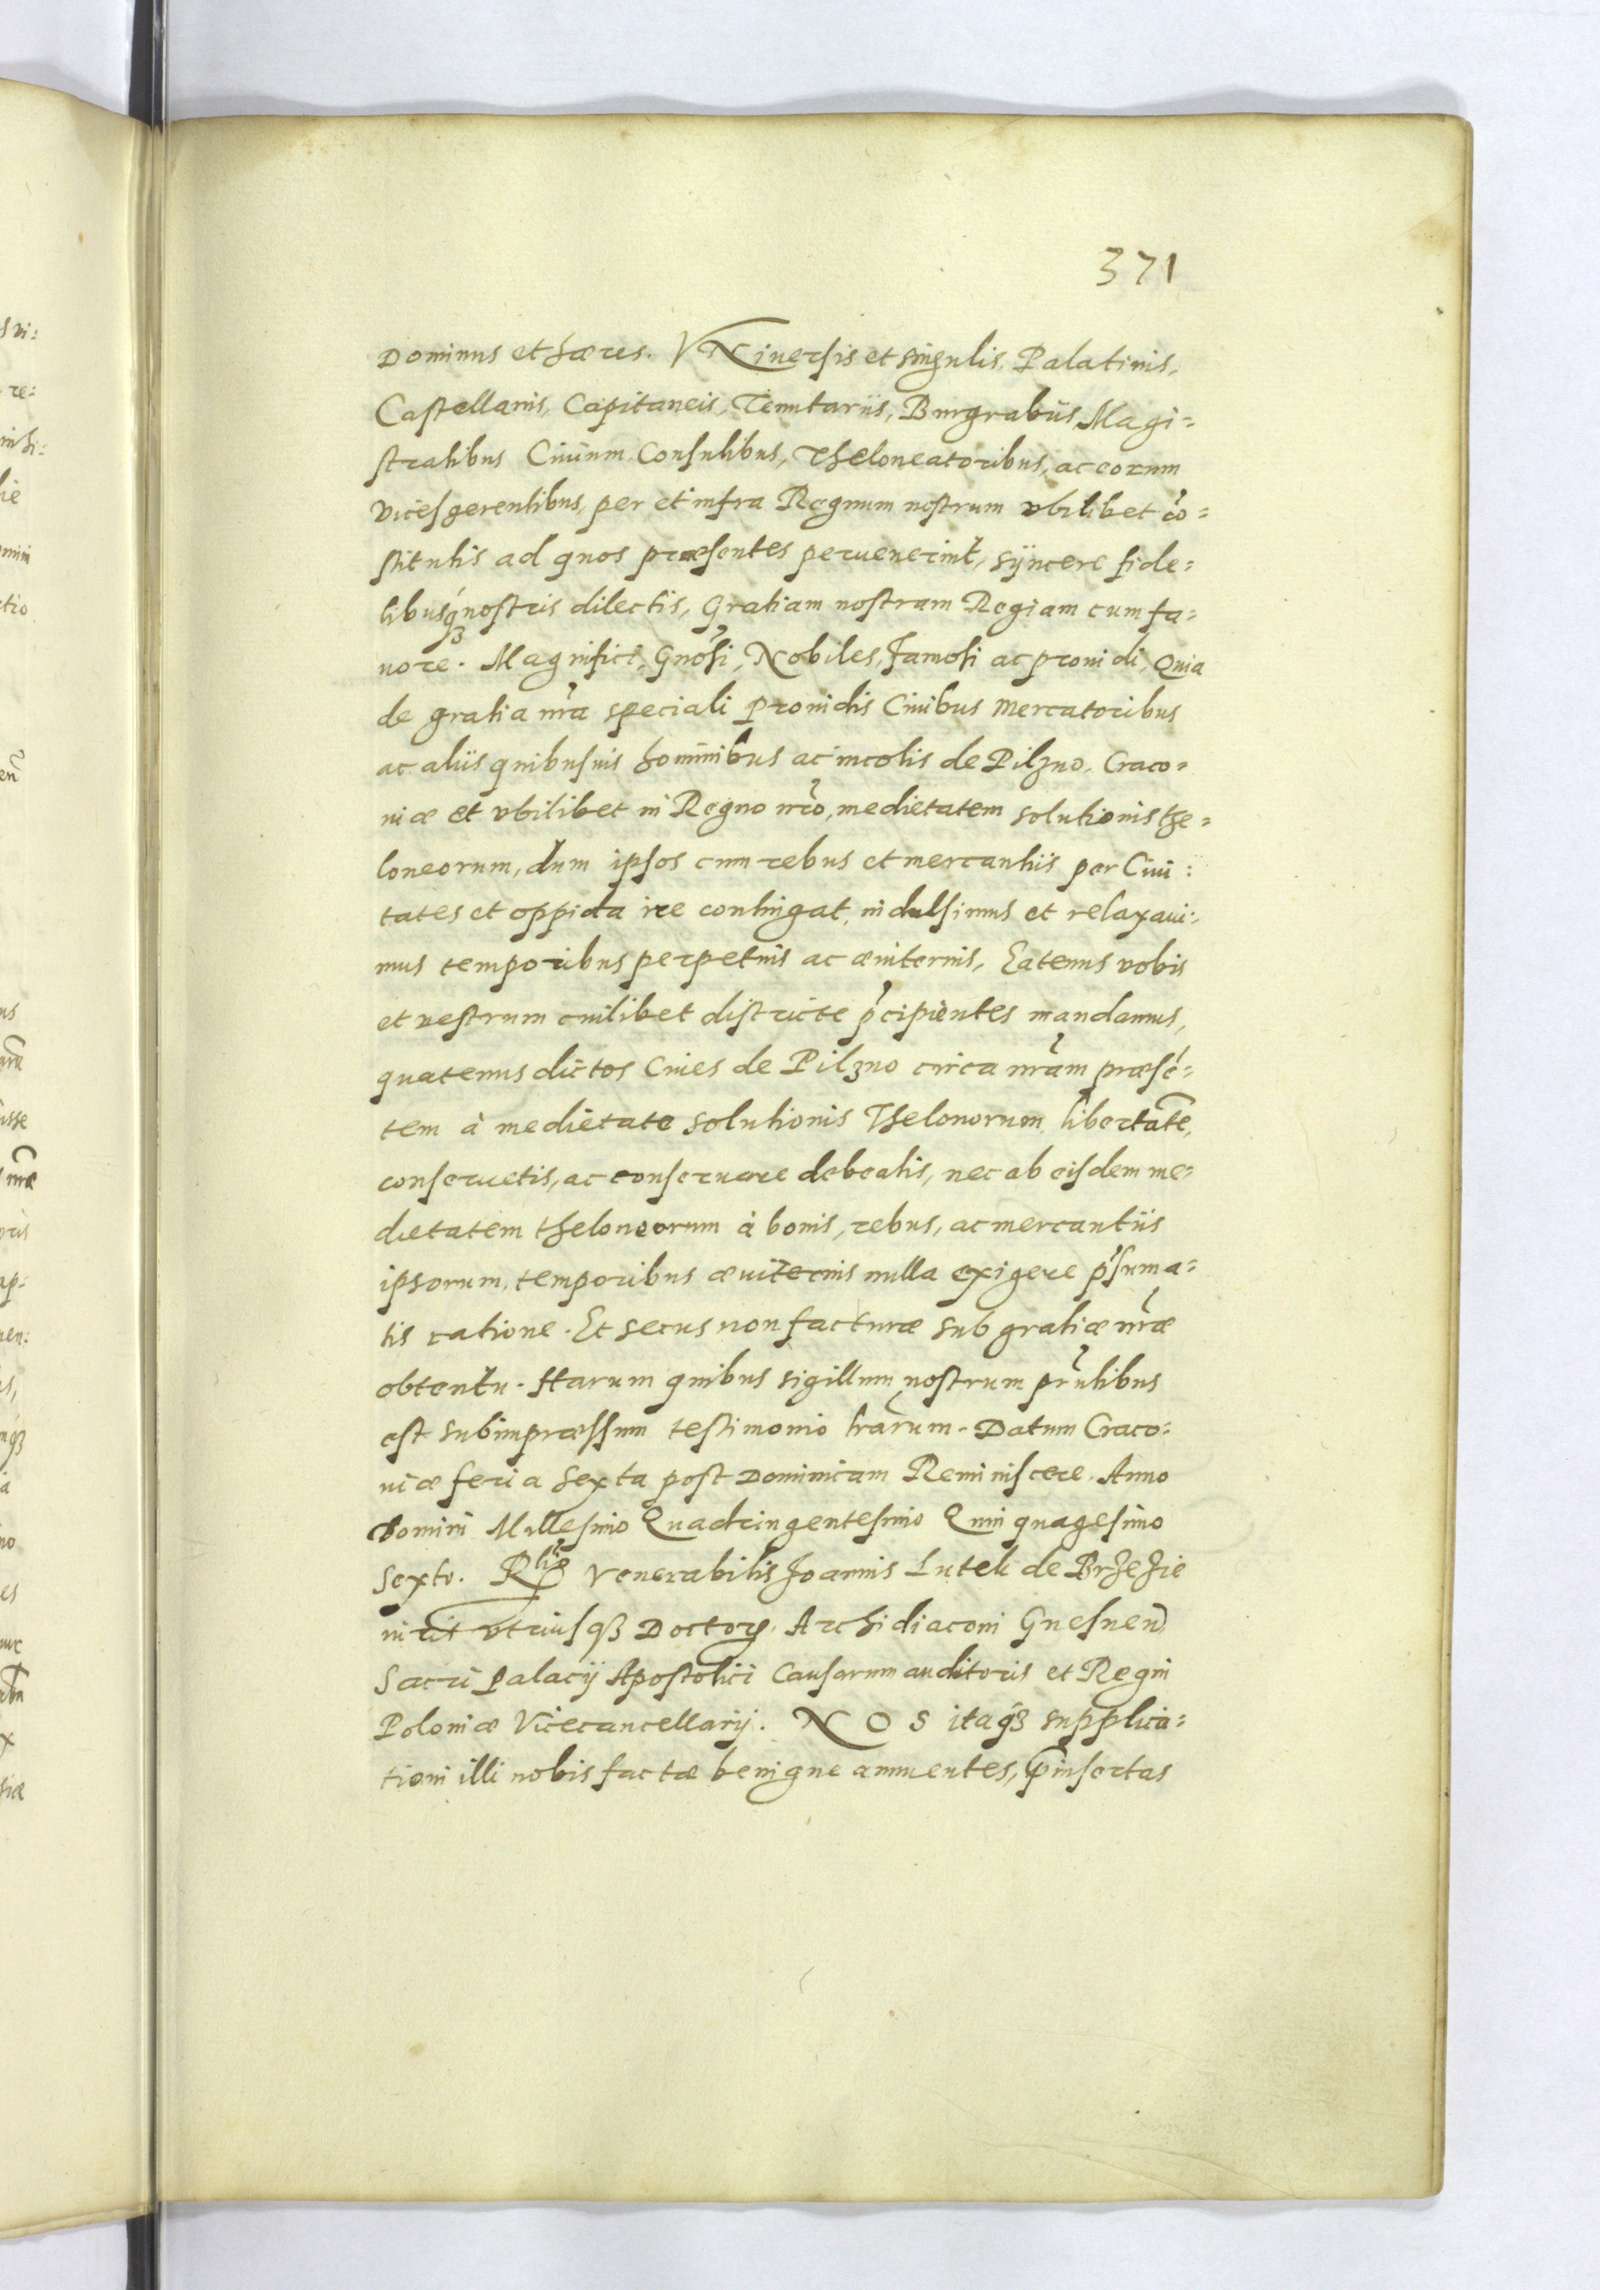 371
Dominus et hæres. VNiuersis et singulis, Palatinis,
Castellanis, Capitaneis, Tenutariis, Burgrabiis, Magi=
stratibus Ciuium, Consulibus, Theloneatoribus, ac eorum
vicesgerentibus, per et infra Regnum nostrum vbilibet cō=
stitutis ad quos præsentes peruenerint, syncere fide=
libusqȝ nostris dilectis, Gratiam nostram Regiam cum fa=
uore. Magnifici, Gnōsi, Nobiles, Famosi ac prouidi, Quia
de gratia nrā speciali prouidis Ciuibus Mercatoribus
ac aliis quibusuis hominibus ac incolis de Pilzno, Craco=
uiæ et vbilibet in Regno nrō, medietatem solutionis the=
loneorum, dum ipsos cum rebus et mercantiis per Ciui=
tates et oppida ire contingat, indulsimus et relaxaui=
mus temporibus perpetuis ac æuiternis, Eatenus vobis
et vestrum cuilibet districte p̄cipientes mandamus,
quatenus dictos Ciues de Pilzno circa nrām præsē=
tem à medietate solutionis Thelonorum, libertatē,
conseruetis, ac conseruare debeatis, nec ab eisdem me=
dietatem theloneorum à bonis, rebus, ac mercantiis
ipsorum, temporibus æuiternis nulla exigere p̄suma=
tis ratione. Et secus non facturæ sub gratiæ nrǣ
obtentu. Harum quibus sigillum nostrum prn̄tibus
est subimpræssum testimonio lrārum. Datum Craco=
uiæ feria sexta post Dominicam Reminiscere. Anno
Domini Millesimo Quadringentesimo Quinquagesimo
Sexto. Venerabilis Joannis Lutek de Brzezie
vtriusqȝ Doctoris, Archidiaconi Gnesnen̄
Sacri Palacij Apostolici Causarum auditoris et Regni
Poloniæ Vicecancellarij. NOS itaqȝ supplica=
tioni illi nobis factæ benigne annuentes, p̄insertas